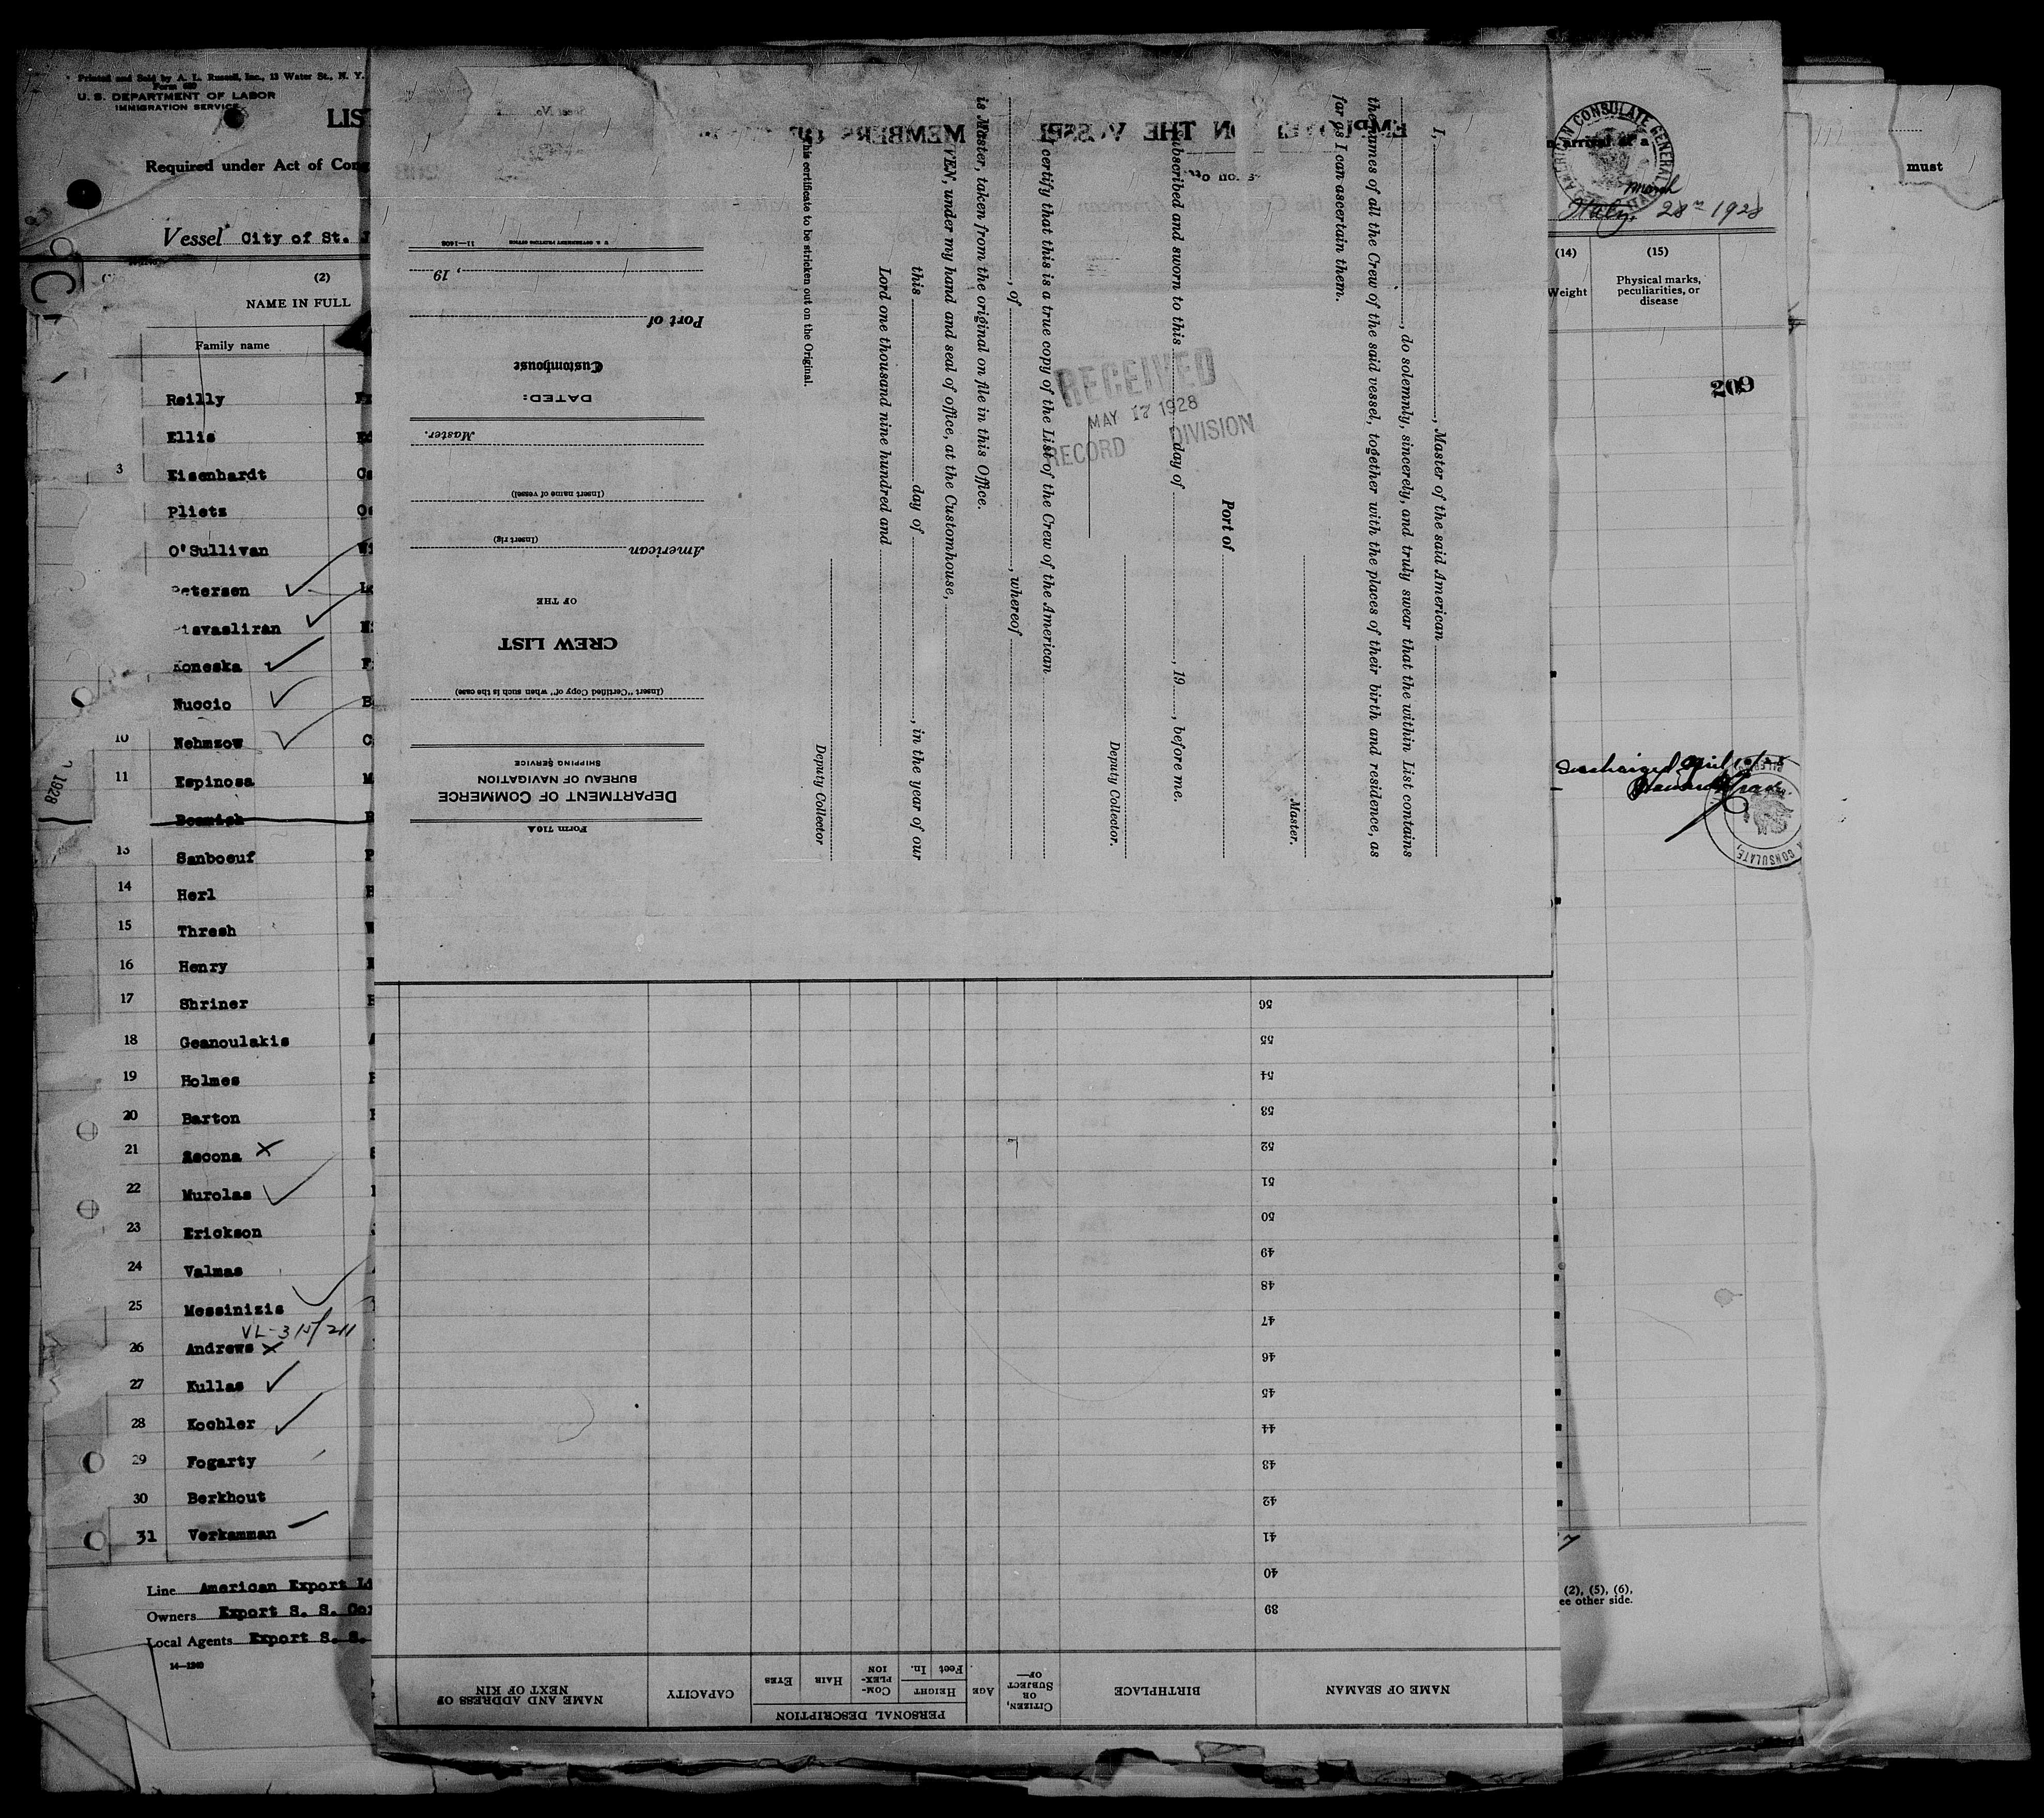 Printed and Sold by A. L. Russell, Inc., 13 Water St., N. Y.
U. S. DEPARTMENT OF LABOR
IMMIGRATION SERVICE
LIS
Required under Act of Cong
Vessel City of St. J
(2)
NAME IN FULL
Family name
Reilly
Ellis
3 Eisenhardt
Pliets
O'Sullivan
Petersen
isvasliran
Koneska
Nuccio
10 Nehmzow
11 Espinosa
Beamish
13 Sanboeuf
14 Herl
15 Thresh
16 Henry
17 Shriner
18 Geanoulakis
19 Holmes
20 Barton
21 Ascona X
22 Murolas
23 Erickson
24 Valmas
25 Messinizis
VL-315/211
26 Andrews X
27 Kullas
28 Kochler
29 Fogarty
30 Berkhout
31 Verkamman
Line American Export Li
Owners Export S. S. Cor
Local Agents Export S. S.
14—1240
Form 710A
DEPARTMENT OF COMMERCE
BUREAU OF NAVIGATION
SHIPPING SERVICE
(Insert "Certified Copy of" when such is the case)
CREW LIST
OF THE
American
(Insert rig)
(Insert name of vessel)
Master.
DATED:
Customhouse
Port of
, 19
U. S. GOVERNMENT PRINTING OFFICE 11—1408
EMPLOYED ON THE VESSEL
MEMBERS OF
I, , Master of the said American
, do solemnly, sincerely, and truly swear that the within List contains
the names of all the Crew of the said vessel, together with the places of their birth and residence, as
far as I can ascertain them.
Master.
Port of
Subscribed and sworn to this day of , 19 , before me.
Deputy Collector.
certify that this is a true copy of the List of the Crew of the American
, of , whereof
is Master, taken from the original on file in this Office.
VEN, under my hand and seal of office, at the Customhouse,
this day of , in the year of our
Lord one thousand nine hundred and
Deputy Collector
This certificate to be stricken out on the Original.
RECEIVED
MAY 17 1928
RECORD DIVISION
NAME OF SEAMAN
BIRTHPLACE
CITIZEN, OR SUBJECT OF—
AGE
PERSONAL DESCRIPTION
HEIGHT
Feet In.
COMPLEXION
HAIR
EYES
CAPACITY
NAME AND ADDRESS OF NEXT OF KIN
39
40
41
42
43
44
45
46
47
48
49
50
51
52
53
54
55
56
arrival of a
AMERICAN CONSULATE GENERAL
March
Italy, 28" 1928
(14)
Weight
(15)
Physical marks, peculiarities, or disease
209
Discharged April 10/28
CONSULATE
(2), (5), (6),
ee other side.
must
1928